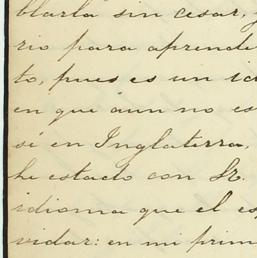 blarla sin cesar,
rio para aprende
to, pues es un
en que aun no es
sé en Inglaterra,
he estado con Sr.
idioma que el es
vidar: en mi prim